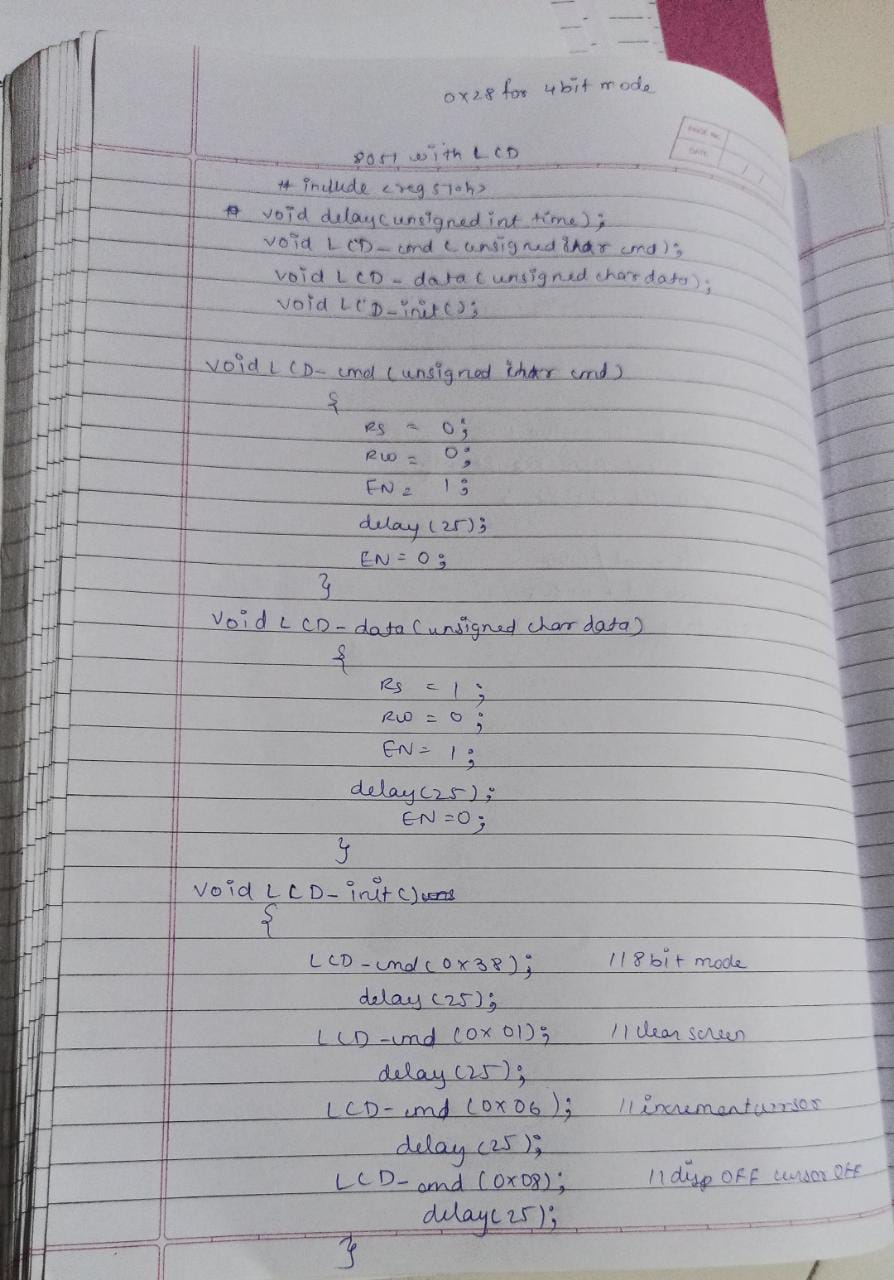 0x28 for 4bit mode
PAGE No.
DATE
8051 with LCD
# include <reg51.h>
void delay(unsigned int time);
void LCD_cmd (unsigned char cmd);
void LCD_data (unsigned char data);
void LCD_init();
void LCD_cmd (unsigned char cmd)
{
RS = 0;
RW = 0;
EN = 1;
delay (25);
EN = 0;
}
void LCD_data (unsigned char data)
{
RS = 1;
RW = 0;
EN = 1;
delay(25);
EN = 0;
}
void LCD_init()
{
LCD_cmd (0x38); //8 bit mode
delay (25);
LCD_cmd (0x01); //clear screen
delay (25);
LCD_cmd (0x06); //increment cursor
delay (25);
LCD_cmd (0x08); //disp OFF cursor OFF
delay(25);
}